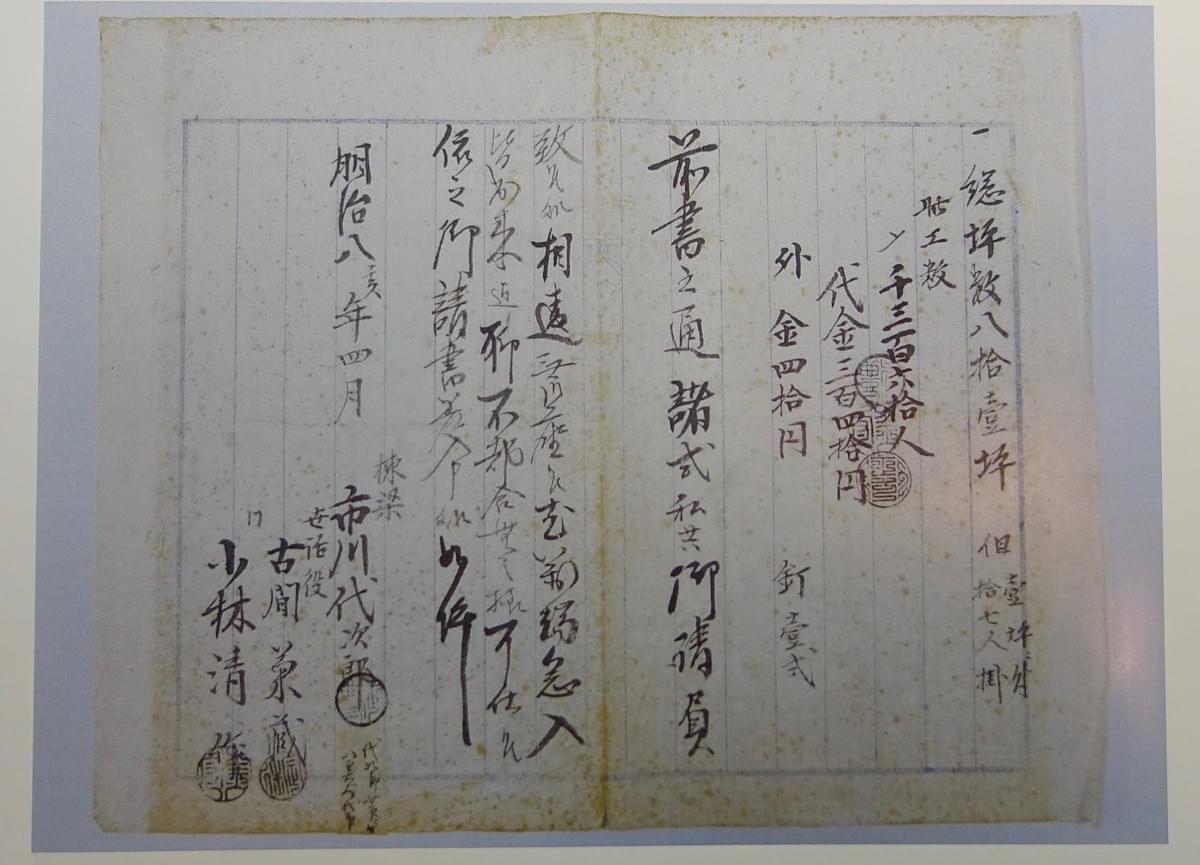 一 総坪数八拾壹坪 但壹坪ニ付
拾七人掛
此工数
〆千三百六拾人
代金三百四拾円
外 金四拾円 釘壹式
前書之通諸式私共御請負
致候処相違無御座候尤萬端念入
皆出来迄聊不都合無之様可仕候
依之御請書差入申処如件
明治八亥年四月
棟梁
市川代次郎
世話役
古間菊蔵
小林清